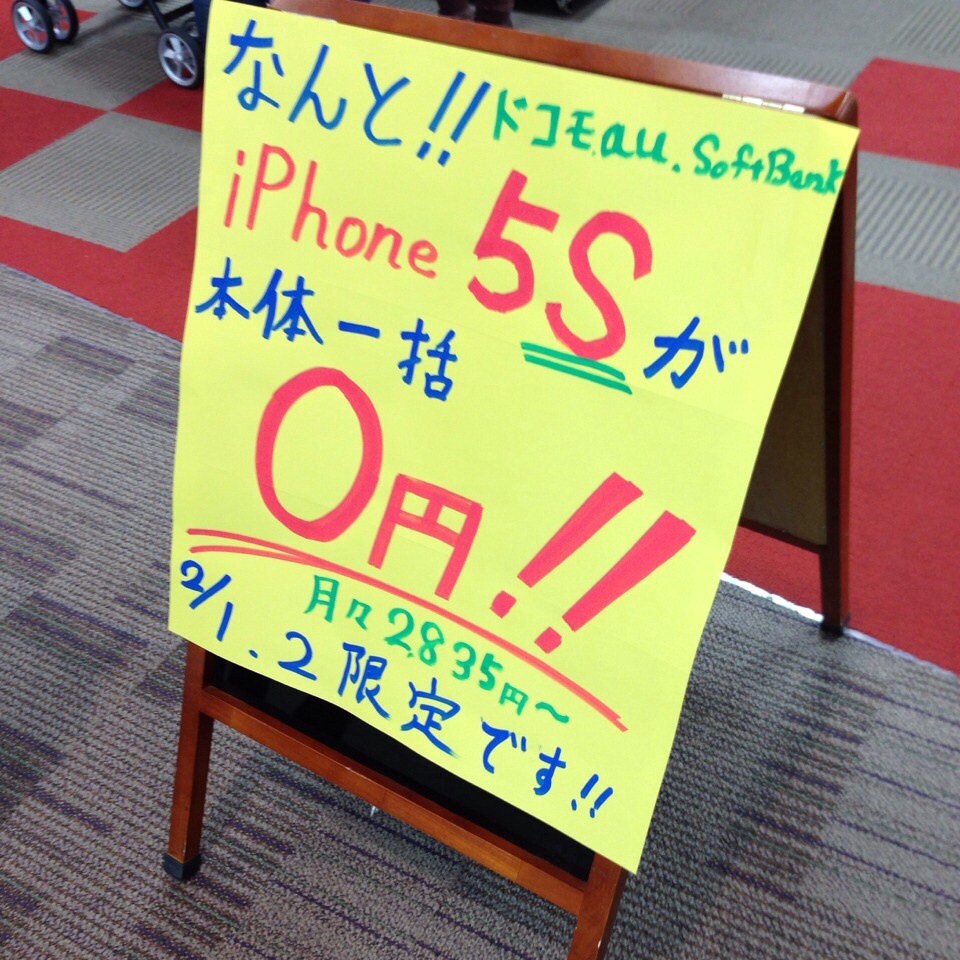 なんと!! ドコモ.au.SoftBank
iPhone 5Sが
本体一括
0円!!
月々2,835円～
2/1.2限定です!!